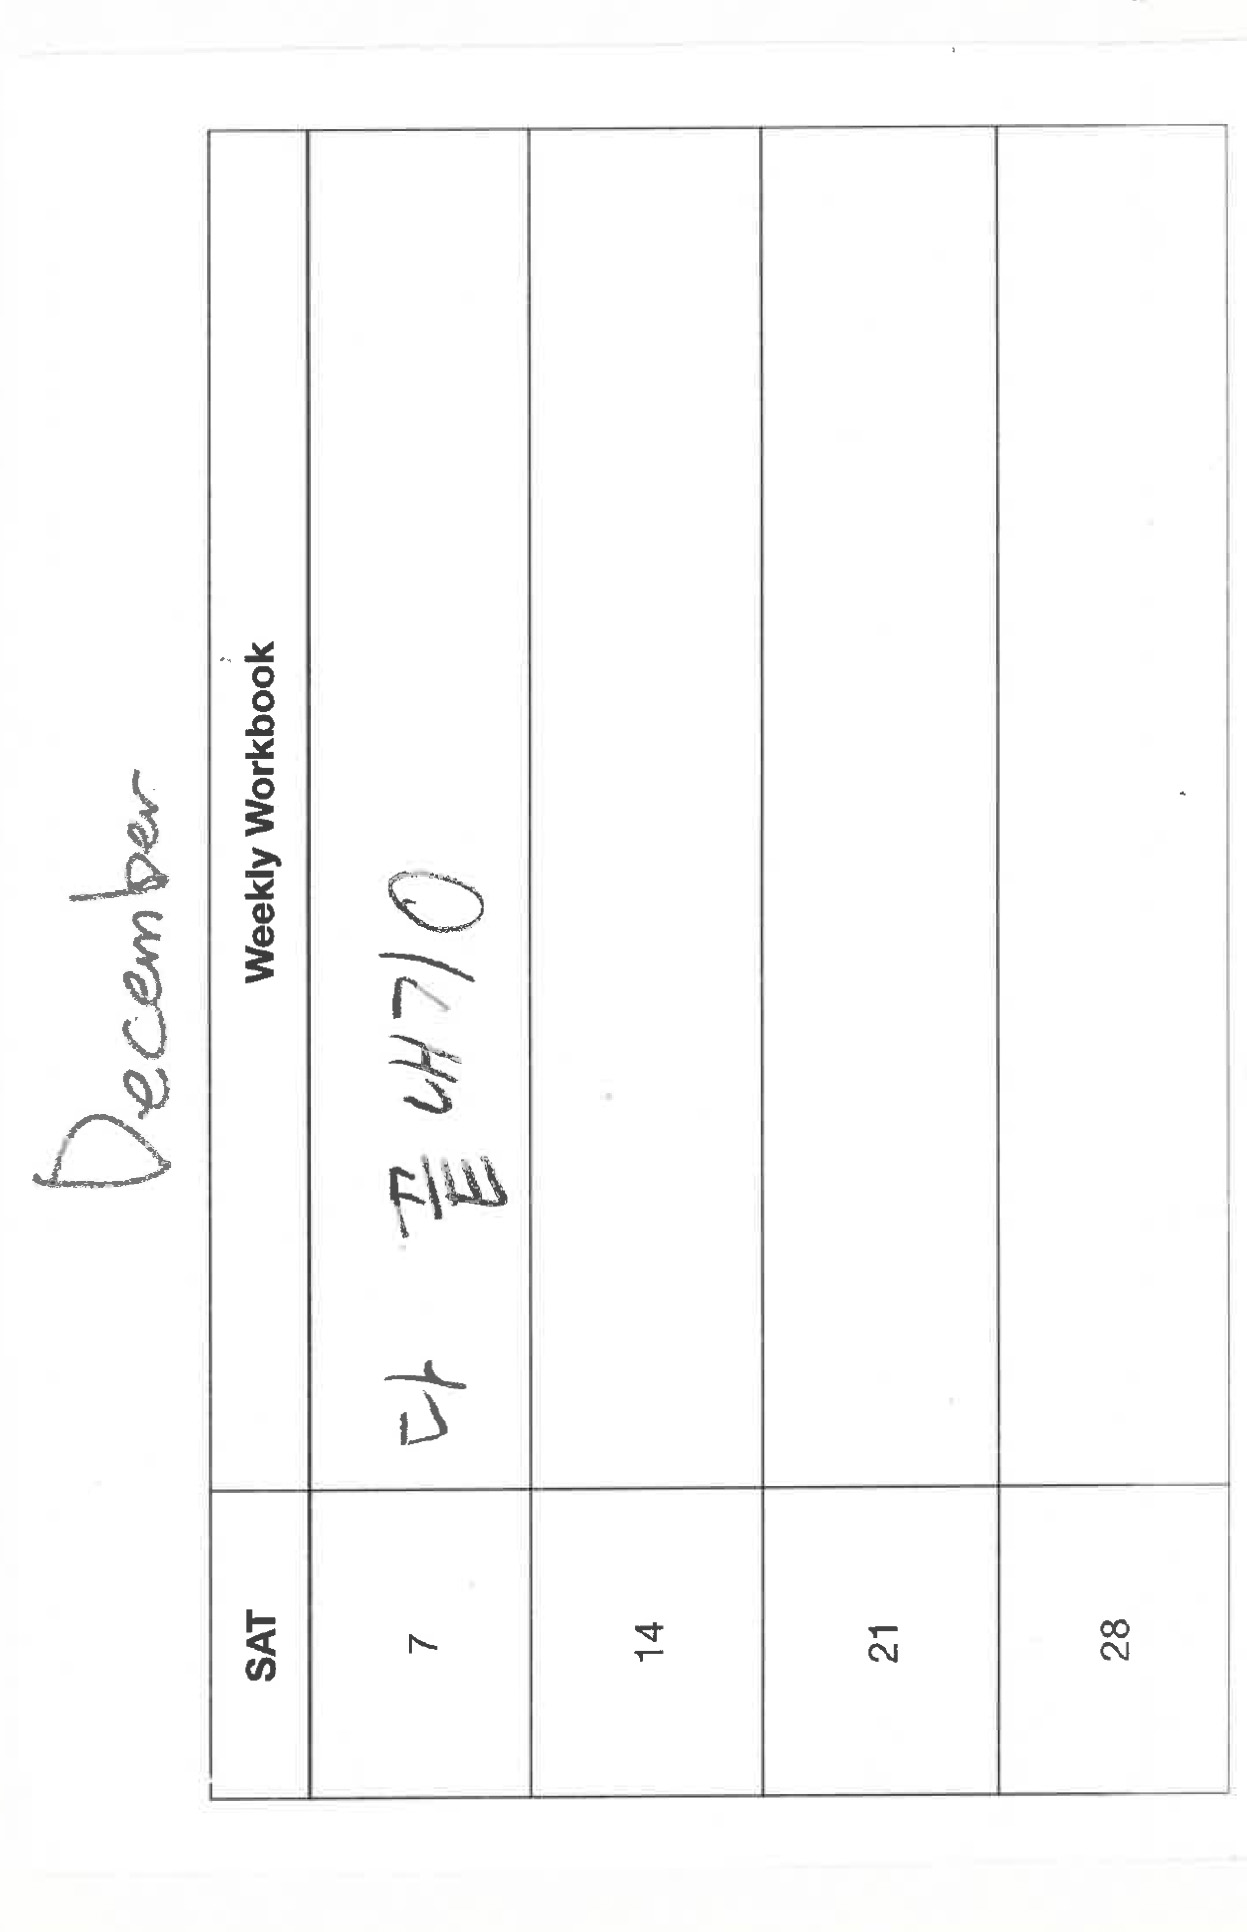 December
SAT Weekly Workbook
7 다 풀내기 O
14
21
28